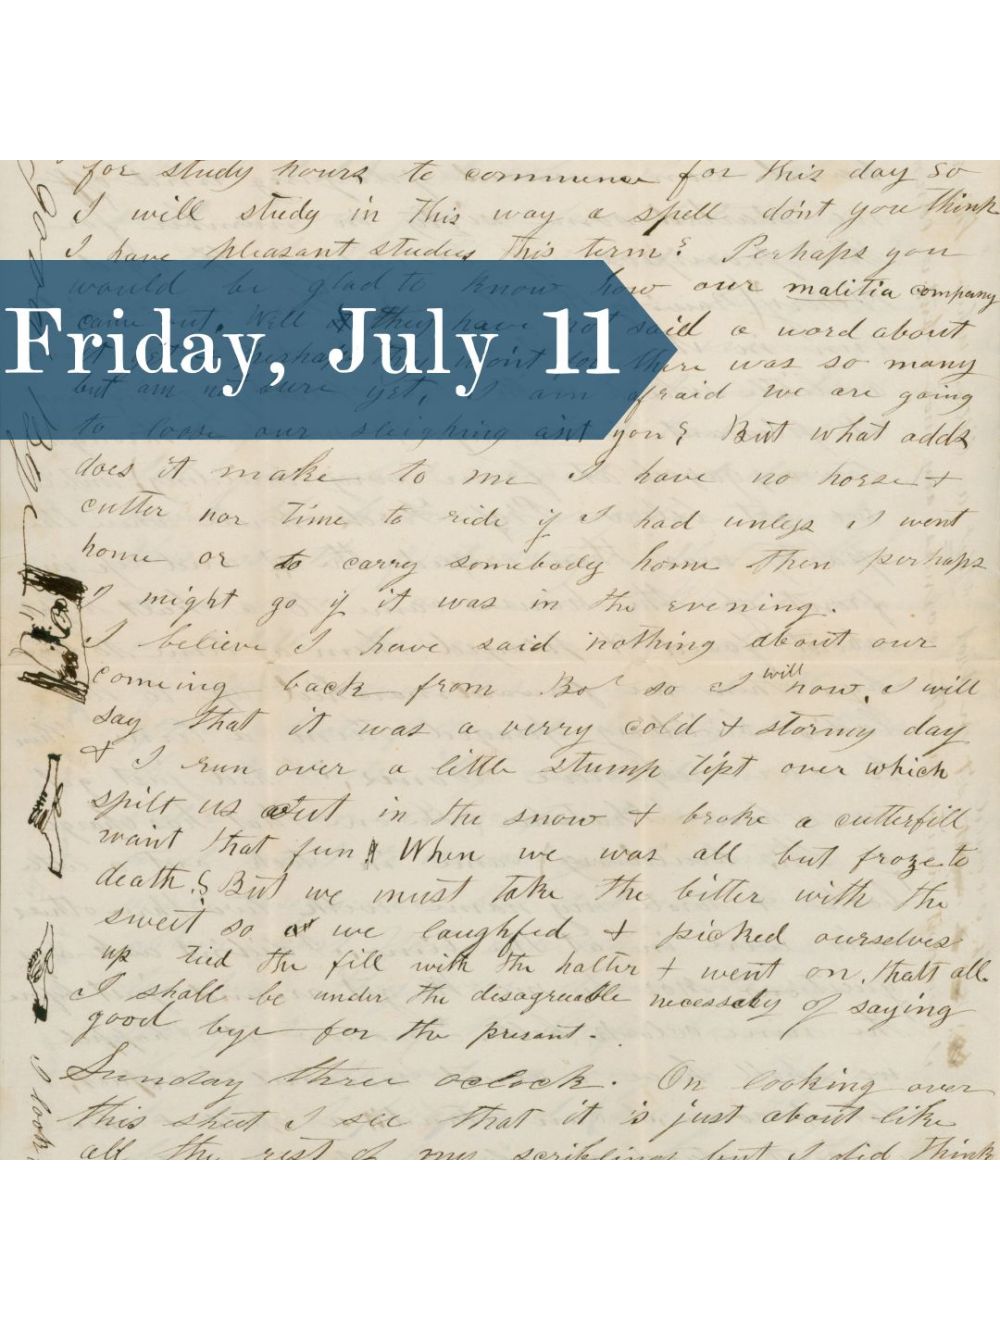 for study hours to commence for this day so
I will study in this way a spell dont you think
I have pleasant studies this term? Perhaps you
would be glad to know how our malitia company
came out. Well they have not said a word about
Friday, July 11
there was so many
but am not sure yet, I am afraid we are going
to loose our sleighing aint you? But what adds
does it make to me I have no horse +
cutter nor time to ride if I had unless I went
home or to carry somebody home then perhaps
I might go if it was in the evening.
I believe I have said nothing about our
comeing back from Bo^l so I will now. I will
say that it was a verry cold & stormy day
& I run over a little stump tipt over which
spilt us out in the snow + broke a cutterfill
want that fun When we was all but froze to
death? But we must take the bitter with the
sweet so we laughfed + picked ourselves
up tied the fill with the halter + went on, thatt all.
I shall be under the desagreeable necessaty of saying
good bye for the present.
Sunday three oclock. On looking over
this sheet I see that it is just about like
all the rest of my scribling but I did think
I look